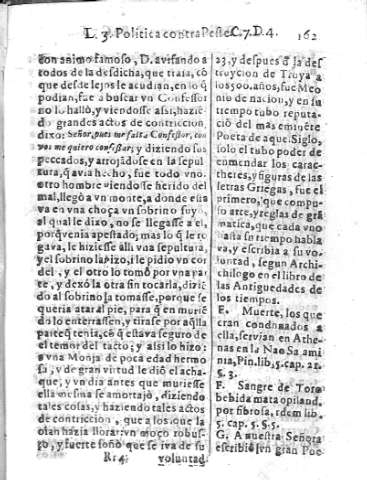 L. 3. Politica contra Peste C. 7. D. 4. 162
con animo famoso, D. avisando a
todos de la desdicha, que traia, co
que desde lejos le acudian, en lo q̃
podian, fue a buscar vn Confessor
no lo hallò, y viendosse assi, haziẽ
do grandes actos de contriccion,
dixo: Señor, pues me falta Confessor, con
vos me quiero confessar; y diziendo sus
peccados, y arrojādose en la sepul
tura, q̃ avia hecho, fue todo vno.
otro hombre viendosse herido del
mal, llegò a vn monte, a donde esta
va en vna choça vn sobrino suyo,
al qual le dixo, no se llegasse a el,
porq̃ venia apestado; mas lo q̃ le ro
gava, le hiziesse alli vna sepultura,
y el sobrino la hizo, i le pidio vn cor
del, y el otro lo tomò por vna par
te, y dexò la otra sin tocarla, diziẽ
do al sobrino la tomasse, porque se
queria atar al pie, para q̃ en muriẽ
do lo enterrassen, y tirase por aq̃lla
parte q̃ tenia, co q̃ estava seguro de
el temor del tacto; y assi lo hizo:
a vna Monja de poca edad hermo
sa, y de gran virtud le diò el acha-
que, y vn dia antes que muriesse
ella mesma se amortajò, diziendo
tales cosas, y haziendo tales actos
de contriccion, que a los que la
oian hazia llorar: vn moço robus-
to, y fuerte soño que se iva de su
Rr 4. voluntad
23, y despues q̃ la des
truycion de Troya a
los 500. años, fue Meo
nio de nacion, y en su
tiempo tubo reputa-
ciò del mas eminẽte
Poeta de aque. Siglo,
solo el tubo poder de
enmendar los carac-
theres, y figuras de las
letras Griegas, fue el
primero, que compu-
so arte, y reglas de grã
matica, que cada vno
asta su tiempo habla
va, y escribia a su vo-
luntad, segun Archi-
chilogo en el libro de
las Antiguedades de
los tiempos.
E. Muerte, los que
eran condenados a
ella, servian en Athe-
nas en la Nao Sa ami
nia, Pin. lib. 5. cap. 21.
§. 3.
F. Sangre de Toro
bebida mata opiland.
por fibrosa, idem lib.
5. cap. 5. §. 5.
G. A nuestra Señora
escribiò vn gran Poe